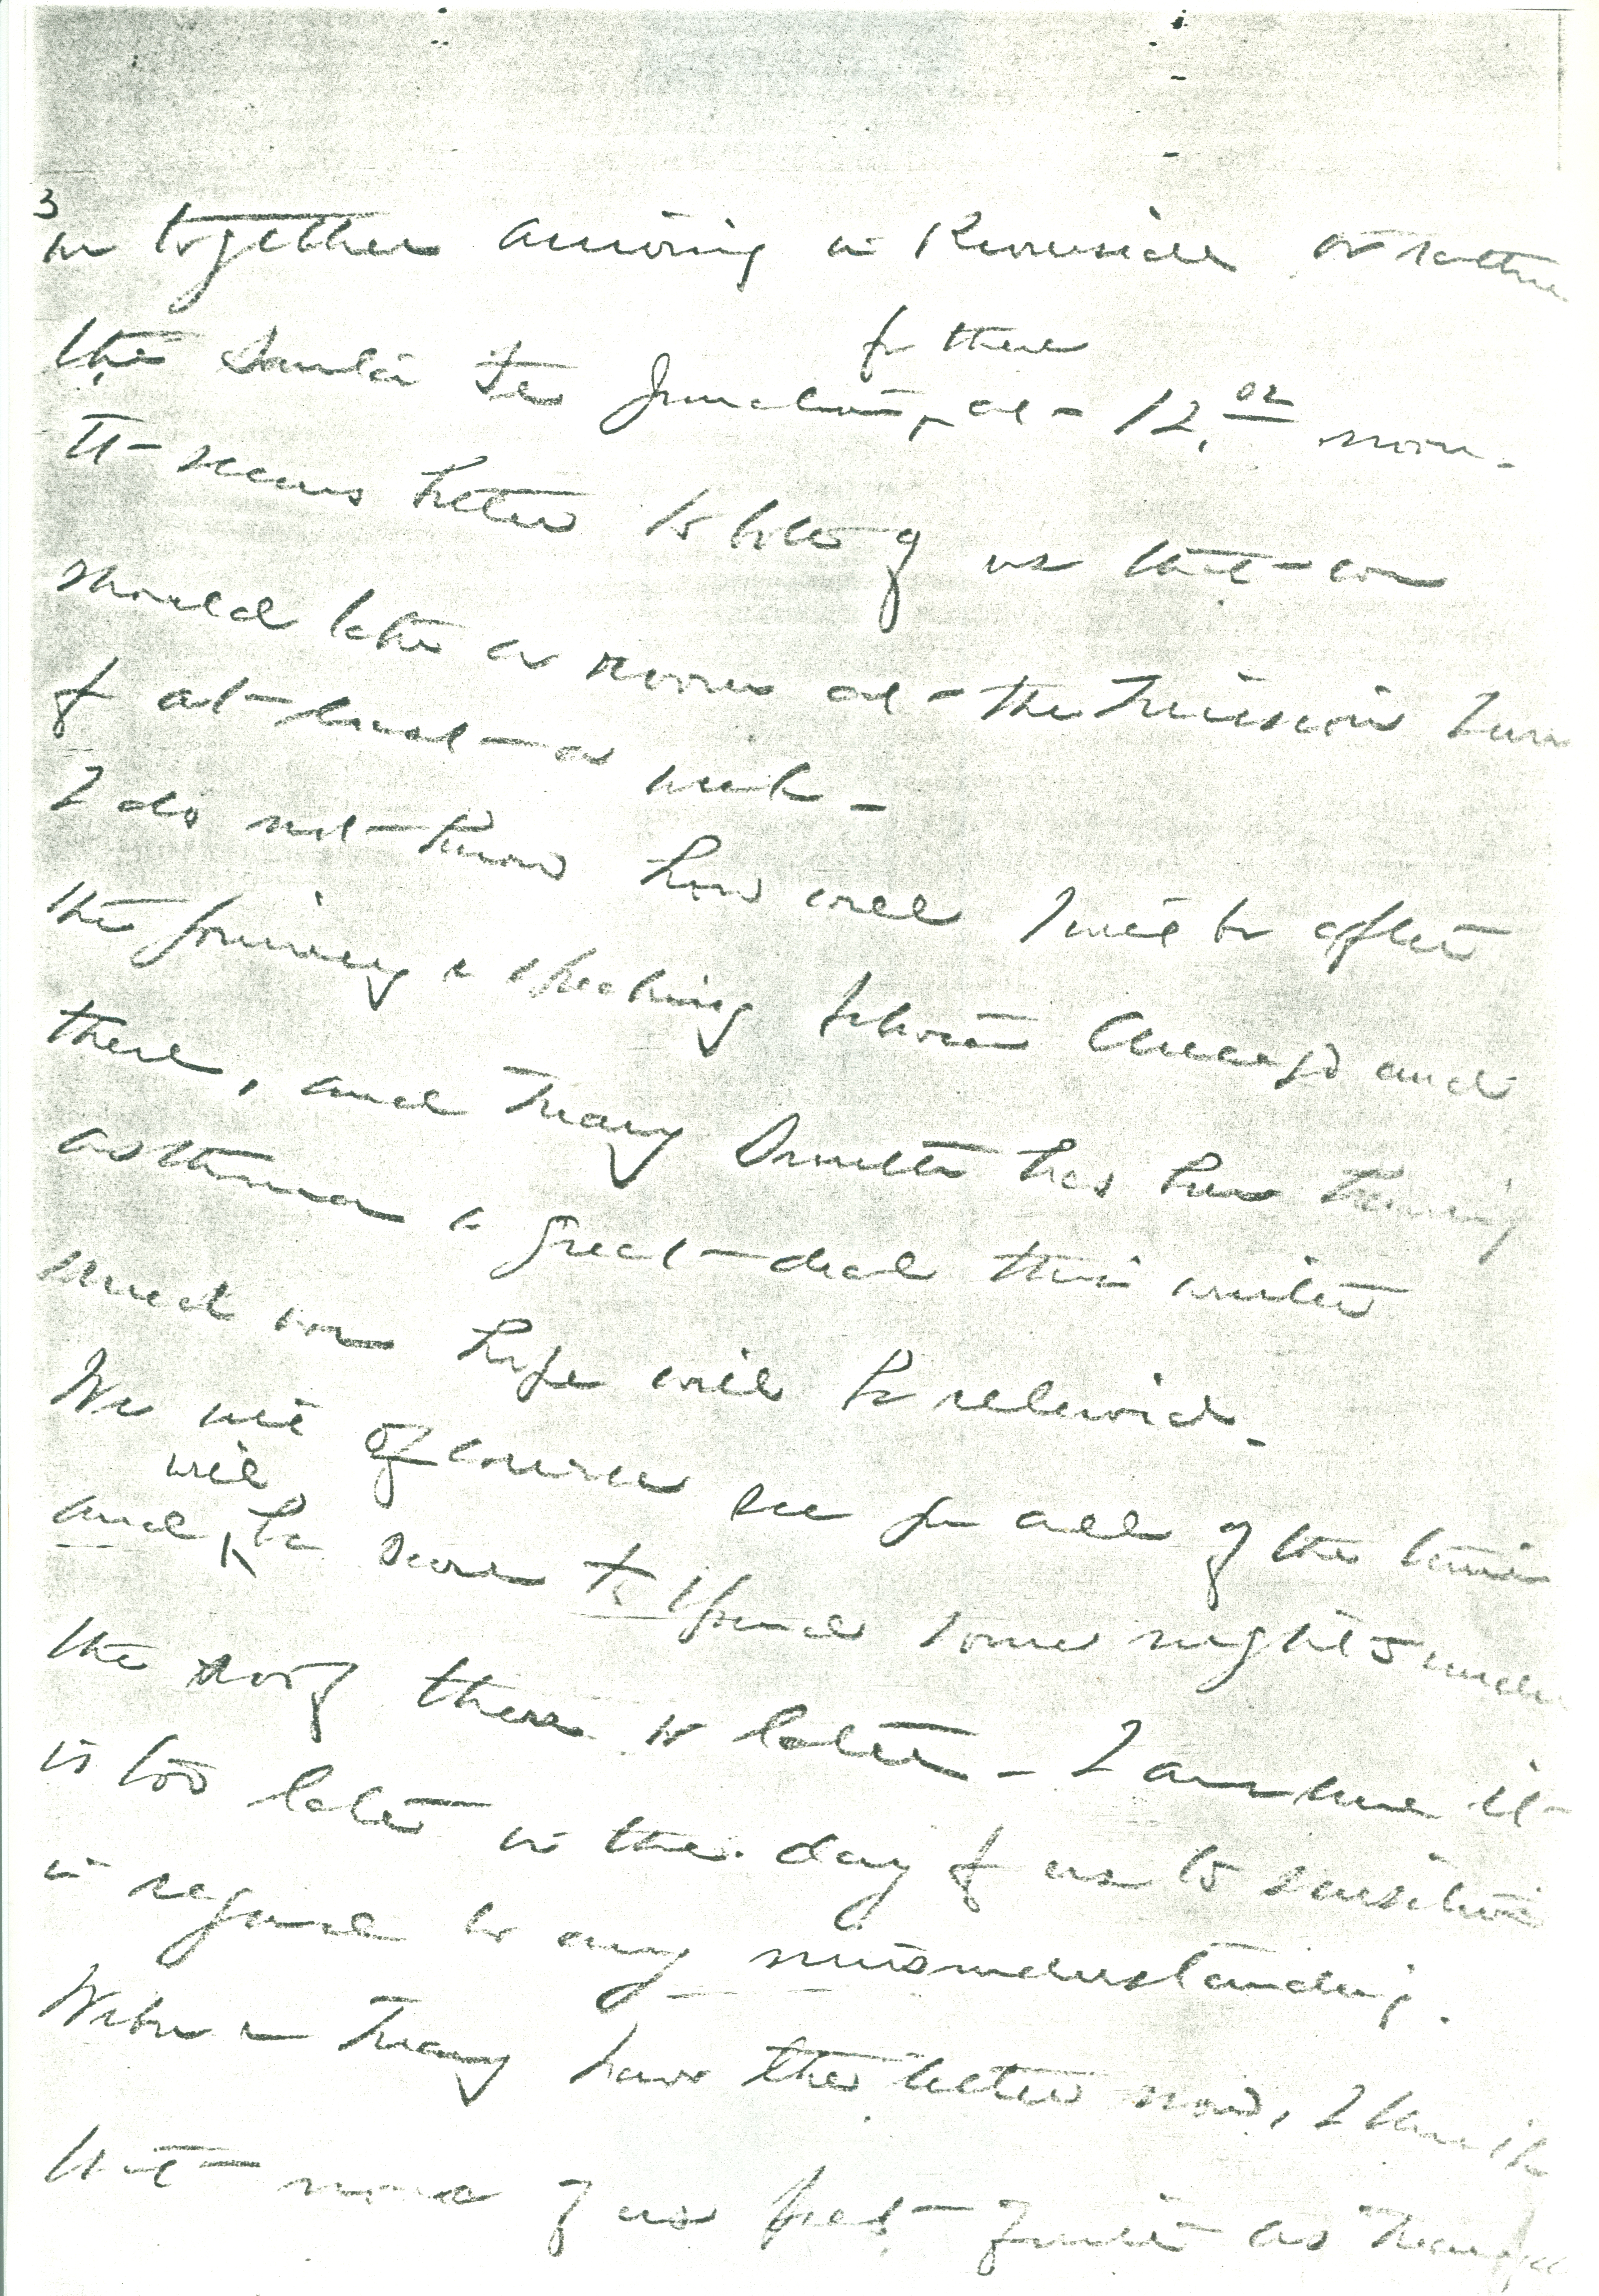 3
in together arriving in Riverside or rather
the Santa Fe Junction, for there at - 12.02 noon.
It - seems better to both of us that - we
should take a room at - the Mission Inn
for at - least - a week -
I do not - know how well I will be after
the journey & speaking between Chicago and
there, and Mary Smith has been having
asthma a great - deal this winter
which we hope will be relieved.
We will of course see you all of the time
and will be sure to spend some nights under
the roof there later - I assure it -
is too late in the day for us to sensitive
in regard to any misunderstanding.
Mary have the letter now, I think
that - none of us feel - quite as